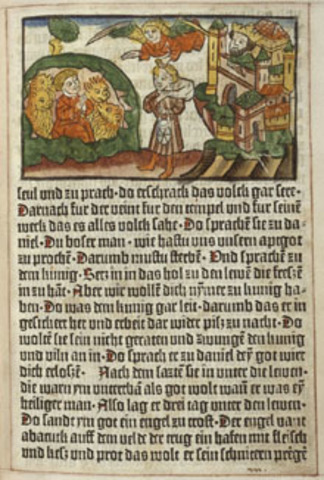 seul und zu prach · do erschrack das volck gar sere ·
Darnach fur der veint fur den tempel und fur seinē
weck das es alles volck sahe · Do sprachē sie zu da=
niel · Du boser man · wie hastu uns unsern apgot
zu prochē · Darumb mustu sterbē · Und sprachē zu
dem kunig · Setz in in das hol zu den lewē die fressē
in zu hāt · Aber wie wollēt dich nymer zu kunig ha=
ben · Do was dem kunig gar leit · darumb das er in
gesichert het und erbeit dar wider pisz zu nacht · Do
woltē sie sein nicht geraten und zwungē den kunig
und viln an in · Do sprach er zu daniel dey got wirt
dich erlosē · Nach dem satztē sie in unter die lewen ·
die warn ym untertan als got wolt wan̄ er was eȳ
heiliger man · Also lag er drei tag unter den lewen ·
Do sandt ym got ein engel zu trost · Der engel vant
abacuck auff dem velde der trug ein hafen mit fleisch
und kesz und prot das wolt er sein schnitern prēgē